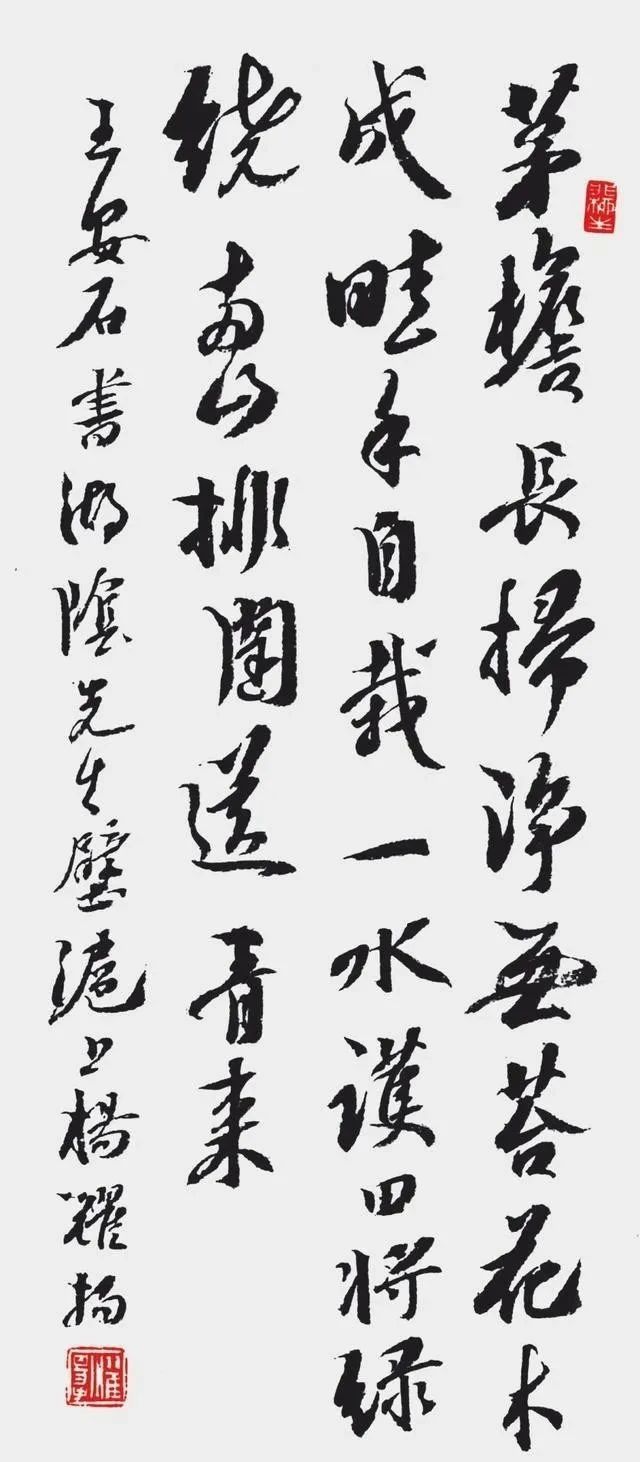 茅檐長掃淨無苔花木
成畦手自栽一水護田將綠
繞兩山排闥送青來
王安石書湖陰先生壁滬上楊耀揚